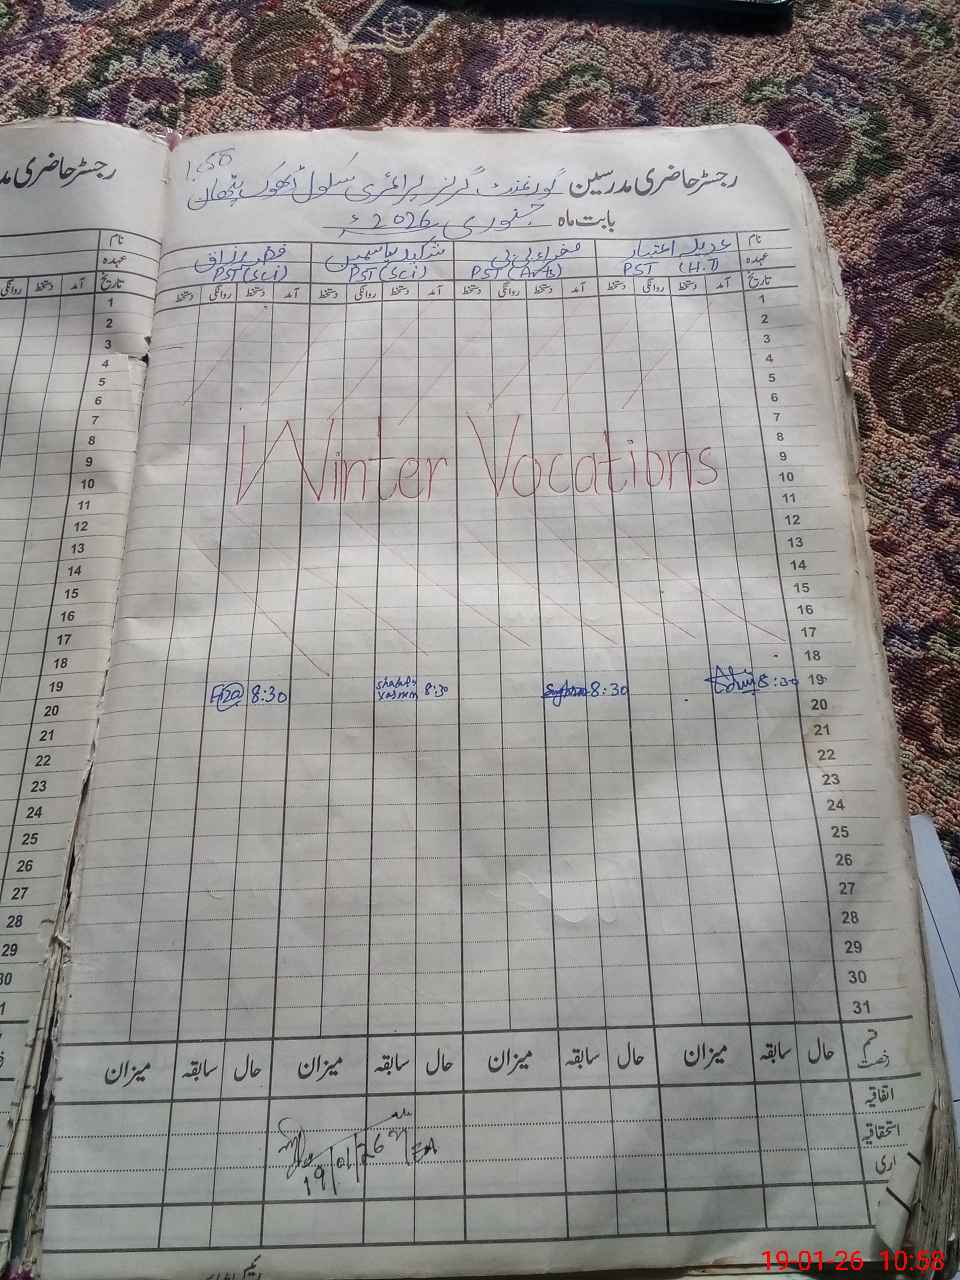 رجسٹر حاضری مد
1.50
رجسٹر حاضری مدرسین گورنمنٹ گرلز پرائمری سکول ڈھوک پٹھان
بابت ماہ جنوری 2026ء
نام عدیلہ اعتبار صغراء بی بی شکیلہ یاسمین فضہ رزاق
عہدہ PST (H.T) PST (A.As) PST (Sci) PST (Sci)
تاریخ آمد دستخط روانگی دستخط آمد دستخط روانگی دستخط آمد دستخط روانگی دستخط آمد دستخط روانگی دستخط
نام
عہدہ
تاریخ آمد دستخط روانگی
1
2
3
4
5
6
7
8
9
10
11
12
13
14
15
16
17
18
19
20
21
22
23
24
25
26
27
28
29
30
31
Winter Vocations
8:30 Shakila Yasmin 8:30 8:30 8:30
1
2
3
4
5
6
7
8
9
10
11
12
13
14
15
16
17
18
19
20
21
22
23
24
25
26
27
28
29
30
1
قسم رخصت حال سابقہ میزان حال سابقہ میزان حال سابقہ میزان حال سابقہ میزان
اتفاقیہ
استحقاقیہ
19/01/26
19-01-26 10:58